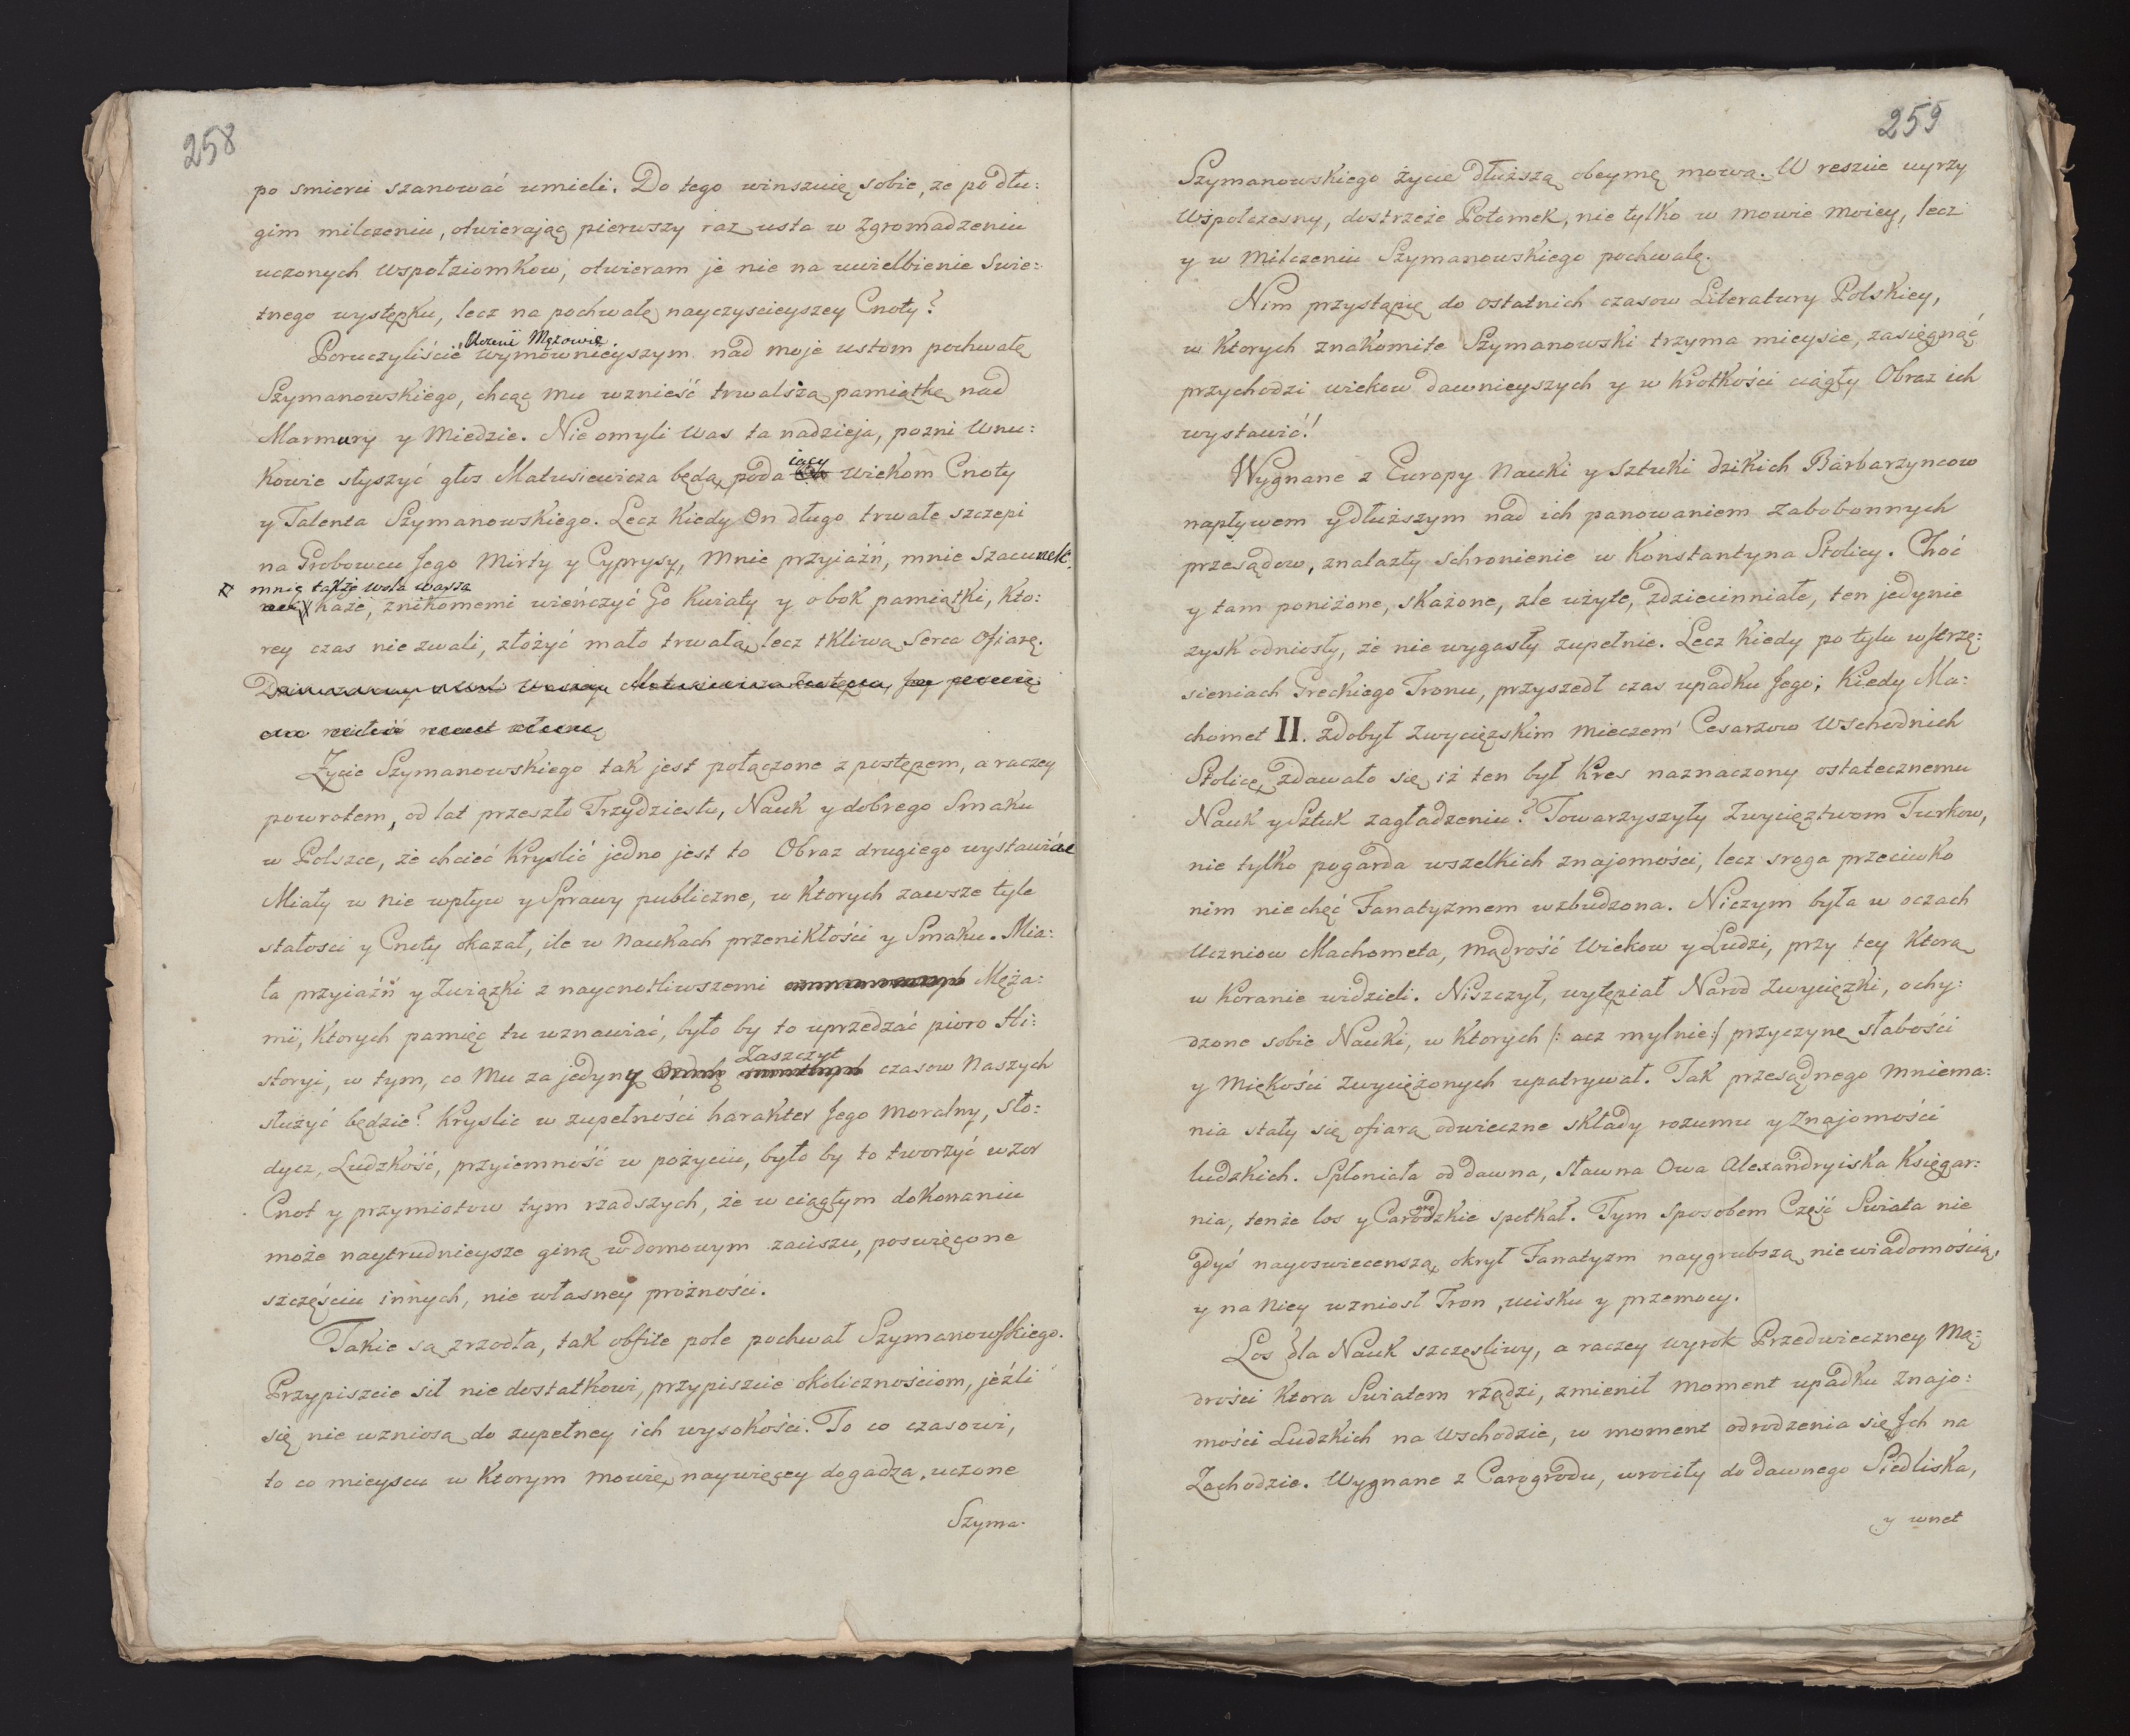 258
po smierci szanować umieli. Do tego winszuię sobie, ze po dłu:
gim milczeniu, otwierając pierwszy raz usta w Zgromadzeniu
uczonych Wspołziomkow, otwieram je nie na uwielbienie Swie:
tnego występku, lecz na pochwałę nayczyscieyszey Cnoty?
Uczeni Mężowie
Poruczyliście wymownieyszym nad moje ustom pochwałę
Szymanowskiego, chcąc mu wznieść trwalszą pamiątkę nad
Marmury y Miedzie. Nie omyli Was ta nadzieja, pozni Wnu:
kowie słyszyć głos Matusiewicza będą, poda iący wiekom Cnoty
y Talenta Szymanowskiego. Lecz kiedy On długo trwałe szczepi
na Grobowcu Jego Mirty y Cyprysy, Mnie przyiaźń, mnie szacunek,
mnie także wola wasza
każe, znikomemi wieńczyć Go kwiaty y obok pamiątki, kto:
rey czas nie zwali, złożyć mało trwałą, lecz tkliwą Serca Ofiarę.
Życie Szymanowskiego tak jest połączone z postępem, a raczey
powrotem, od lat przeszło Trzydziestu, Nauk y dobrego Smaku
w Polszce, że chcieć kryslić jedno jest to Obraz drugiego wystawiać
Miały w nie wpływ y Sprawy publiczne, w ktorych zawsze tyle
stałosci y Cnoty okazał, ile w Naukach przenikłości y Smaku. Mia:
ła przyiaźń y Związki z naycnotliwszemi Męża:
mi, ktorych pamięc tu wznawiać, było by to uprzedzać pioro Hi:
storyi, w tym, co Mu za jedyny Zaszczyt czasow Naszych
służyć będzie? Kryslic w zupełności harakter Jego Moralny, Sło:
dycz, Ludzkość, przyiemność w pożyciu, było by to tworzyć wzor
Cnot y przymiotow tym rzadszych, że w ciągłym dokonaniu
może naytrudnieysze giną w domowym zaciszu, poswięcone
szczęściu innych, nie własney prożności.
Takie są zrzodła, tak obfite pole pochwał Szymanowskiego.
Przypiszcie sił niedostatkowi, przypiszcie okolicznościom, jeźli
się nie wzniosą do zupełney ich wysokości. To co czasowi,
to co mieyscu w ktorym mowię, naywięcey dogadza, uczone
Szyma-
259
Szymanowskiego życie dłuższą obeymę mową. W reszcie uyrzy
Wspołczesny, dostrzeże Potomek, nie tylko w mowie moiey, lecz
y w milczeniu Szymanowskiego pochwałę.
Nim przystąpię do ostatnich czasow Literatury Polskiey,
w ktorych znakomite Szymanowski trzyma mieysce, zasięgnąć
przychodzi wiekow dawnieyszych y w krotkości ciągły Obraz ich
wystawić!
Wygnane z Europy Nauki y Sztuki dzikich Barbarzyncow
napływem y dłuższym nad ich panowaniem Zabobonnych
przesądow, znalazły schronienie w Konstantyna Stolicy. Choć
y tam poniżone, skażone, zle użyte, zdziecinniałe, ten jedynie
zysk odniosły, że nie wygasły zupełnie. Lecz kiedy po tylu wstrzą:
sieniach Greckiego Tronu, przyszedł czas upadku Jego; kiedy Ma:
chomet II. zdobył zwycięzskim Mieczem Cesarzow Wschodnich
Stolicę, zdawało się iż ten był kres naznaczony ostatecznemu
Nauk y Sztuk zagładzeniu? Towarzyszyły Zwycięztwom Turkow,
nie tylko pogarda wszelkich znajomości, lecz sroga przeciwko
nim niechęć Fanatyzmem wzbudzona. Niczym była w oczach
Uczniow Machometa, Mądrość Wiekow y Ludzi, przy tey którą
w Koranie widzieli. Niszczył, wytępiał Narod Zwycięzki, ochy:
dzone sobie Nauki, w ktorych /: acz mylnie :/ przyczynę słabości
y Miękości zwyciężonych upatrywał. Tak przesądnego Mniema:
nia stały się ofiarą odwieczne składy rozumu y Znajomości
ludzkich. Spłoniała od dawna, sławna Owa Alexandryiska Księgar:
nia, tenże los y Carogrodzkie spotkał. Tym sposobem Część Swiata nie
gdyś nayoswiecenszą, okrył Fanatyzm naygrubszą niewiadomością,
y na Niey wzniosł Tron, ucisku y przemocy.
Los dla Nauk szczęsliwy, a raczey wyrok Przedwieczney Mą:
drości ktora Swiatem rządzi, zmienił moment upadku Znajo:
mości Ludzkich na Wschodzie, w moment odrodzenia się Jch na
Zachodzie. Wygnane z Carogrodu, wrociły do dawnego Siedliska,
y wnet